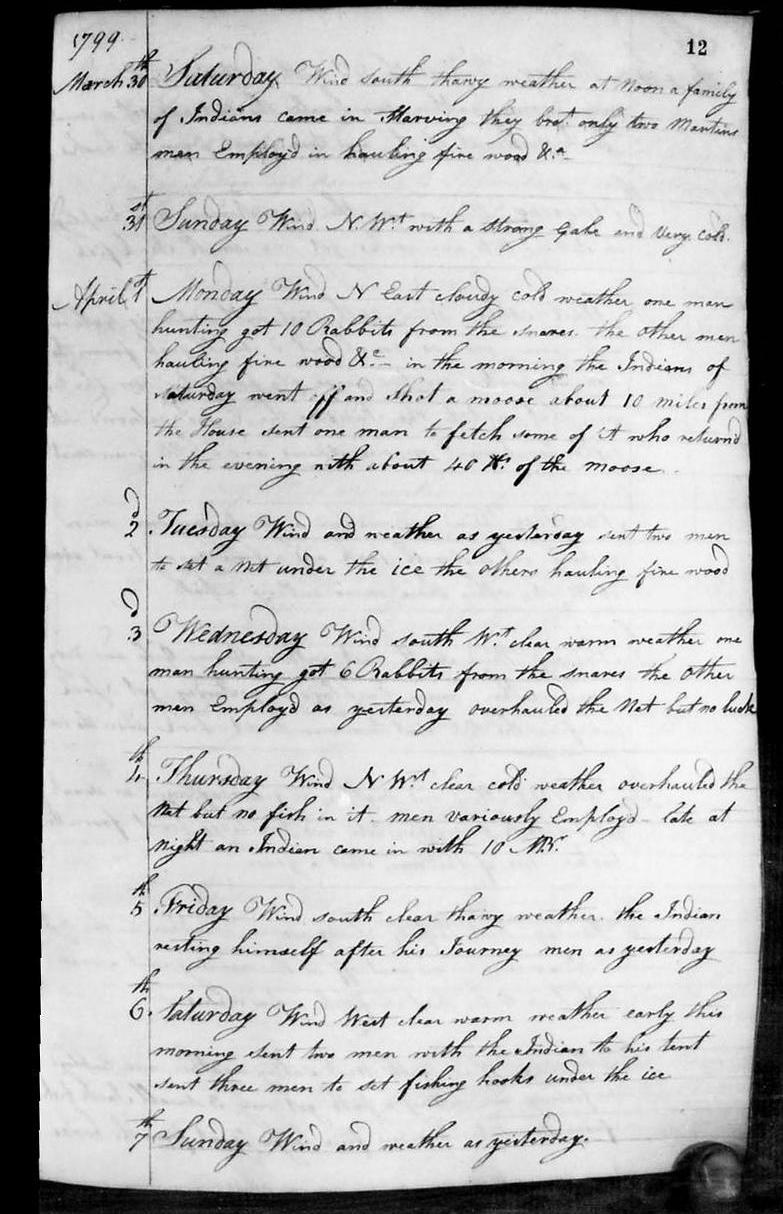 1799
12
March 30th Saturday Wind south thawy weather at Noon a family
of Indians came in Starving they brot. only two Martins
men Employ'd in hauling fire wood &.a
31st Sunday Wind N.Wt with a strong Gale and very cold.
April 1st Monday Wind N East cloudy cold weather one man
hunting got 10 Rabbits from the snares. the other men
hauling fire wood &c - in the morning the Indians of
Saturday went off and shot a moose about 10 miles from
the House sent one man to fetch some of it who return'd
in the evening with about 40 lbs. of the moose.
2d Tuesday Wind and weather as yesterday sent two men
to set a Net under the ice the others hauling fire wood
3d Wednesday Wind south Wt. clear warm weather one
man hunting got 6 Rabbits from the snares the other
men Employd as yesterday overhauled the Net but no luck
4th Thursday Wind N Wt clear cold weather overhauled the
Net but no fish in it. men variously Employd - late at
night an Indian came in with 10 MBr.
5th Friday Wind south clear thawy weather. the Indian
resting himself after his Journey men as yesterday
6th. Saturday Wind West clear warm weather early this
morning sent two men with the Indian to his tent
sent three men to set fishing hooks under the ice
7th Sunday Wind and weather as yesterday.